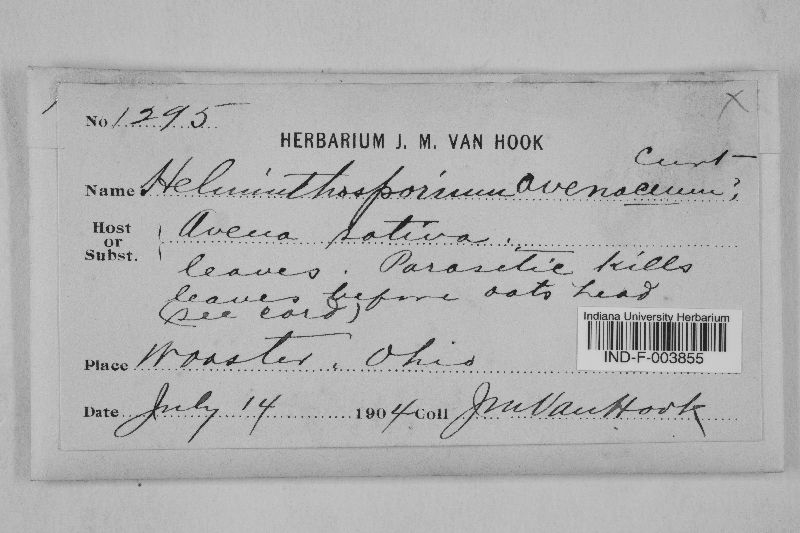 No 1295
HERBARIUM J. M. VAN HOOK
Curt
Name Helminthosporium avenaceum;
Host or Subst. Avena sativa.
leaves. Parasitic kills
leaves before oats head
(see card)
Indiana University Herbarium
IND-F-003855
Place Wooster, Ohio
Date July 14 1904 Coll J M Van Hook